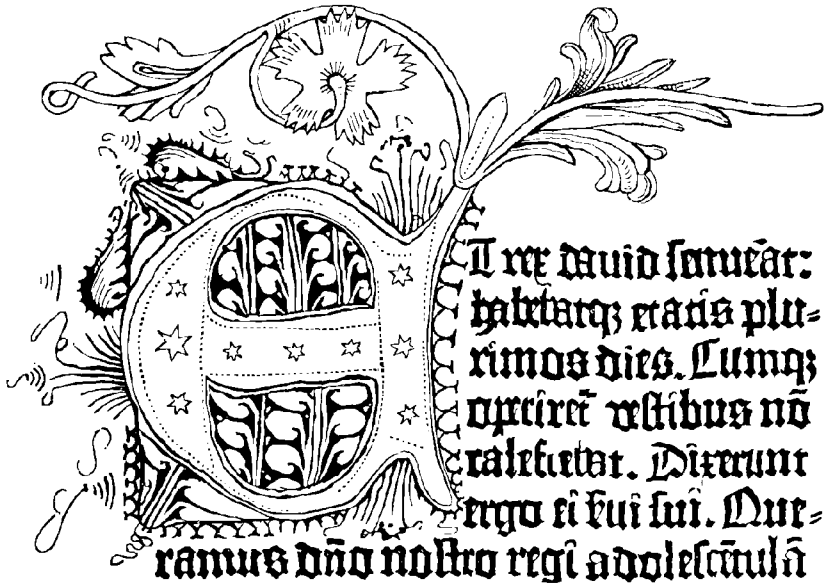 ET rex dauid senuĕat:
habebatqꝫ etatis plu-
rimos dies. Cumqꝫ
operiret᷑ vestibus nō
calefiebat. Dixerunt
ergo ei s̄ui sui. Que-
ramus dn̄o nostro regi adolescētulā